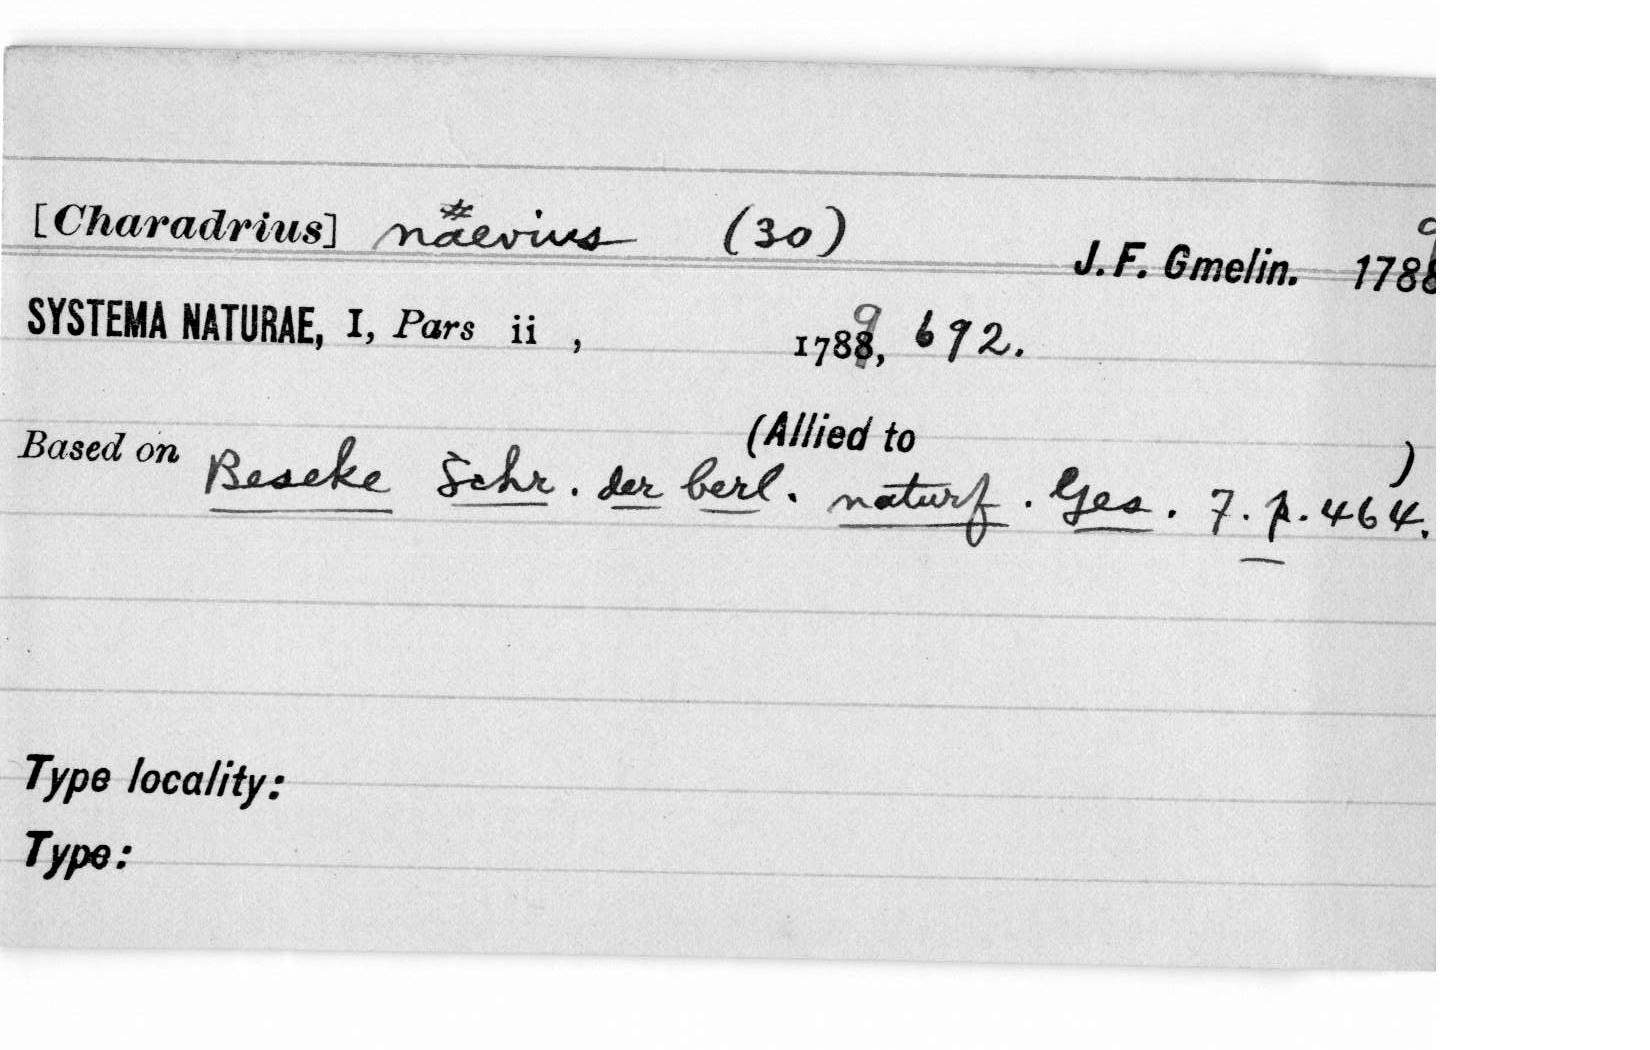 [Charadrius] #naevius (30)
J. F. Gmelin. 1789
SYSTEMA NATURAE, I, Pars ii , 1789, 692.
(Allied to )
Based on Beseke Schr. der berl. naturf. Ges. 7. p. 464.
Type locality:
Type: